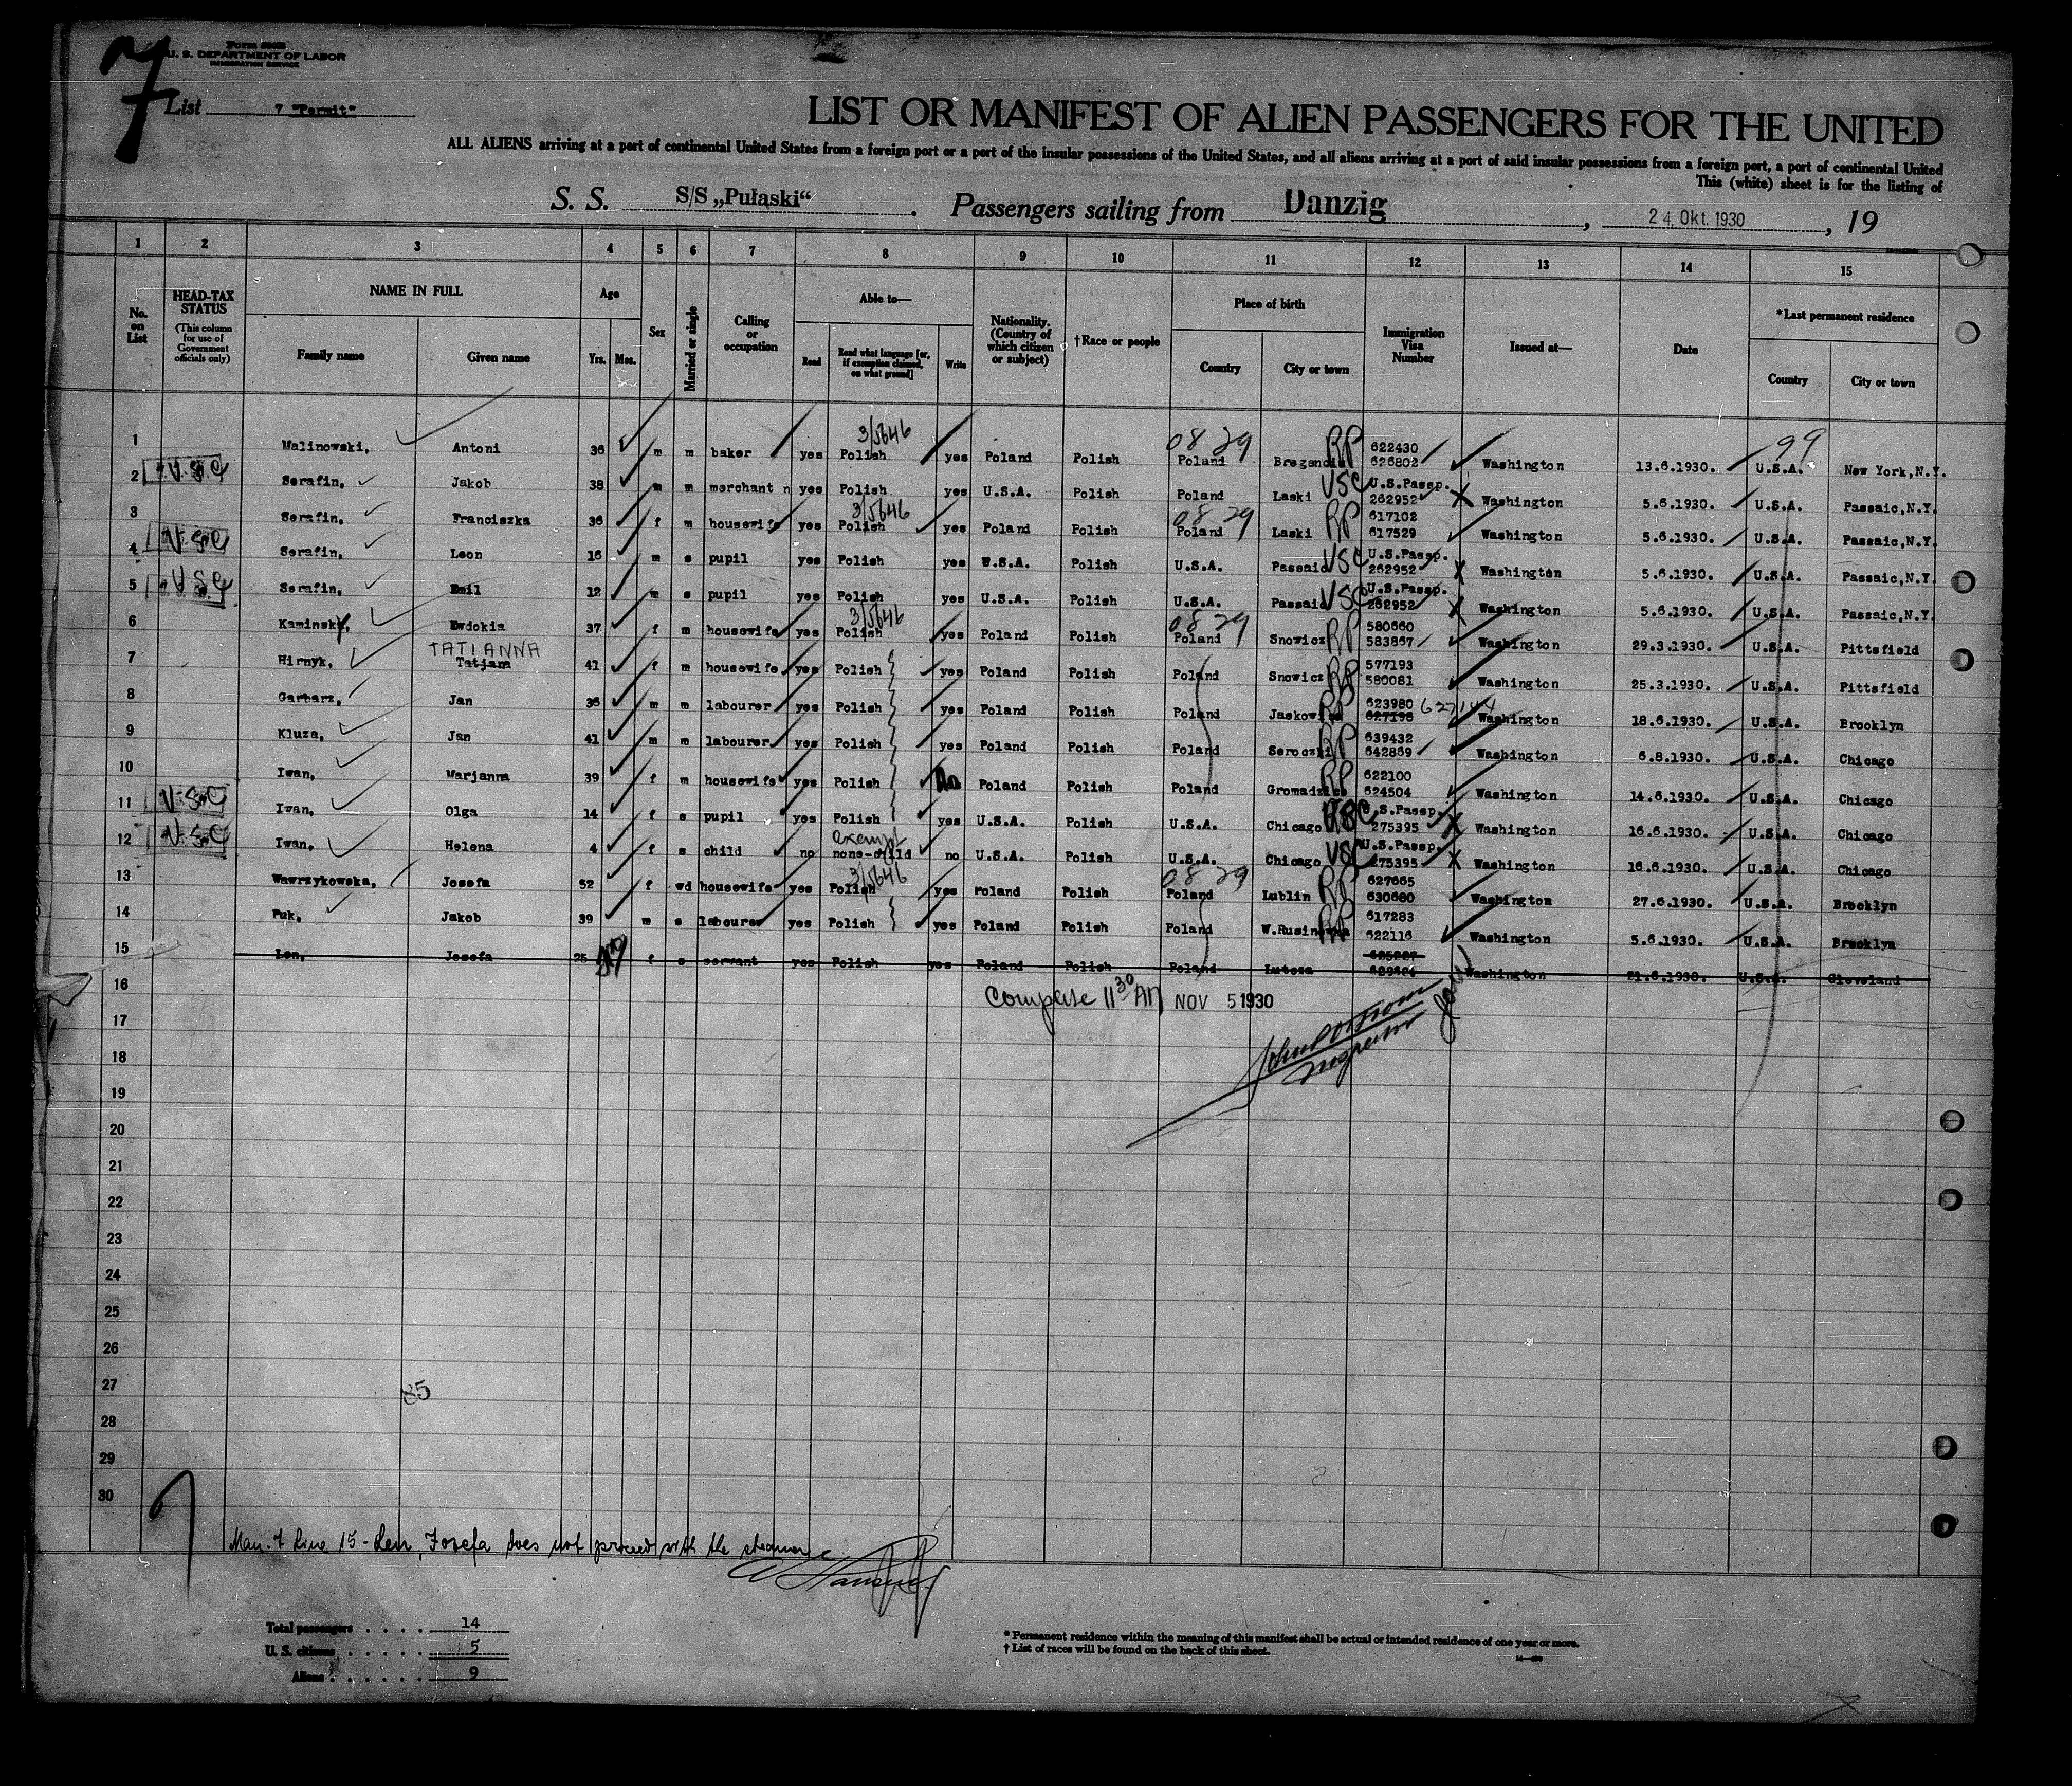 7
Form 500B
U. S. DEPARTMENT OF LABOR
IMMIGRATION SERVICE
List 7 "Permit"
LIST OR MANIFEST OF ALIEN PASSENGERS FOR THE UNITED
ALL ALIENS arriving at a port of continental United States from a foreign port or a port of the insular possessions of the United States, and all aliens arriving at a port of said insular possessions from a foreign port, a port of continental United
This (white) sheet is for the listing of
S. S. S/S „Pułaski“ . Passengers sailing from Danzig , 24. Okt. 1930 , 19
1 2 3 4 5 6 7 8 9 10 11 12 13 14 15
No. on List
HEAD-TAX STATUS
(This column for use of Government officials only)
NAME IN FULL
Family name Given name
Age
Yrs. Mos.
Sex
Married or single
Calling or occupation
Able to—
Read Read what language [or, if exemption claimed, on what ground] Write
Nationality. (Country of which citizen or subject)
†Race or people
Place of birth
Country City or town
Immigration Visa Number
Issued at—
Date
*Last permanent residence
Country City or town
3/5646 08 29 99
1 Malinowski, Antoni 36 m m baker yes Polish yes Poland Polish Poland RP 622430 626802 Washington 13.6.1930. U.S.A. New York, N.Y.
2 U.S.C Serafin, Jakob 38 m m merchant n yes Polish yes U.S.A. Polish Poland Laski USC U.S.Passp. 262952 Washington 5.6.1930. U.S.A. Passaic, N.Y.
3/5646 08 29
3 Serafin, Franciszka 36 f m housewife yes Polish yes Poland Polish Poland Laski RP 617102 617529 Washington 5.6.1930. U.S.A. Passaic, N.Y.
4 U.S.C Serafin, Leon 16 m s pupil yes Polish yes U.S.A. Polish U.S.A. Passaic USC U.S.Passp. 262952 Washington 5.6.1930. U.S.A. Passaic, N.Y.
5 U.S.C Serafin, Emil 12 m s pupil yes Polish yes U.S.A. Polish U.S.A. Passaic USC U.S.Passp. 262952 Washington 5.6.1930. U.S.A. Passaic, N.Y.
3/5646 08 29
6 Kaminsky, Ewdokia 37 f m housewife yes Polish yes Poland Polish Poland Snowicz RP 580660 583867 Washington 29.3.1930. U.S.A. Pittsfield
TATIANNA
7 Hirnyk, Tatjana 41 f m housewife yes Polish yes Poland Polish Poland Snowicz RP 577193 580081 Washington 25.3.1930. U.S.A. Pittsfield
8 Garbarz, Jan 36 m m labourer yes Polish yes Poland Polish Poland RP 623980 627198 627144 Washington 18.6.1930. U.S.A. Brooklyn
9 Kluza, Jan 41 m m labourer yes Polish yes Poland Polish Poland RP 639432 642869 Washington 6.8.1930. U.S.A. Chicago
10 Iwan, Marjanna 39 f m housewife yes Polish no Poland Polish Poland RP 622100 624504 Washington 14.6.1930. U.S.A. Chicago
11 U.S.C Iwan, Olga 14 f s pupil yes Polish yes U.S.A. Polish U.S.A. Chicago USC U.S.Passp. 275395 Washington 16.6.1930. U.S.A. Chicago
exempt
12 U.S.C Iwan, Helena 4 f s child no none-child no U.S.A. Polish U.S.A. Chicago USC U.S.Passp. 275395 Washington 16.6.1930. U.S.A. Chicago
3/5646 08 29
13 Wawrzykowska, Josefa 52 f wd housewife yes Polish yes Poland Polish Poland Lublin RP 627665 630680 Washington 27.6.1930. U.S.A. Brooklyn
14 Puk, Jakob 39 m s labourer yes Polish yes Poland Polish Poland RP 617283 622116 Washington 5.6.1930. U.S.A. Brooklyn
15 Len, Josefa 25 f s servant yes Polish yes Poland Polish Poland Lutcza Washington 21.6.1930. U.S.A. Cleveland
16 Complete 11 30 AM NOV 5 1930
17
18 Inspector
19
20
21
22
23
24
25
26
27
85
28
29
30
Man. 7 Line 15 - Len, Josefa does not proceed with the steamer
Total passengers . . . . 14
U. S. citizens . . . . . 5
Aliens . . . . . . 9
* Permanent residence within the meaning of this manifest shall be actual or intended residence of one year or more.
† List of races will be found on the back of this sheet.